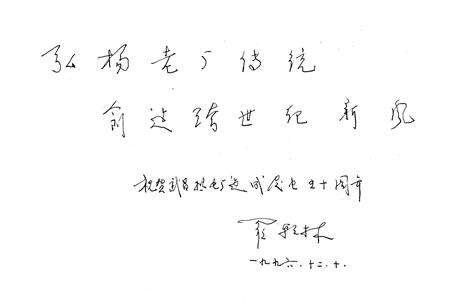 弘杨老厂传统
创造跨世纪新风
祝贺武昌热电厂建成发电五十周年
一九九六.十二.十.